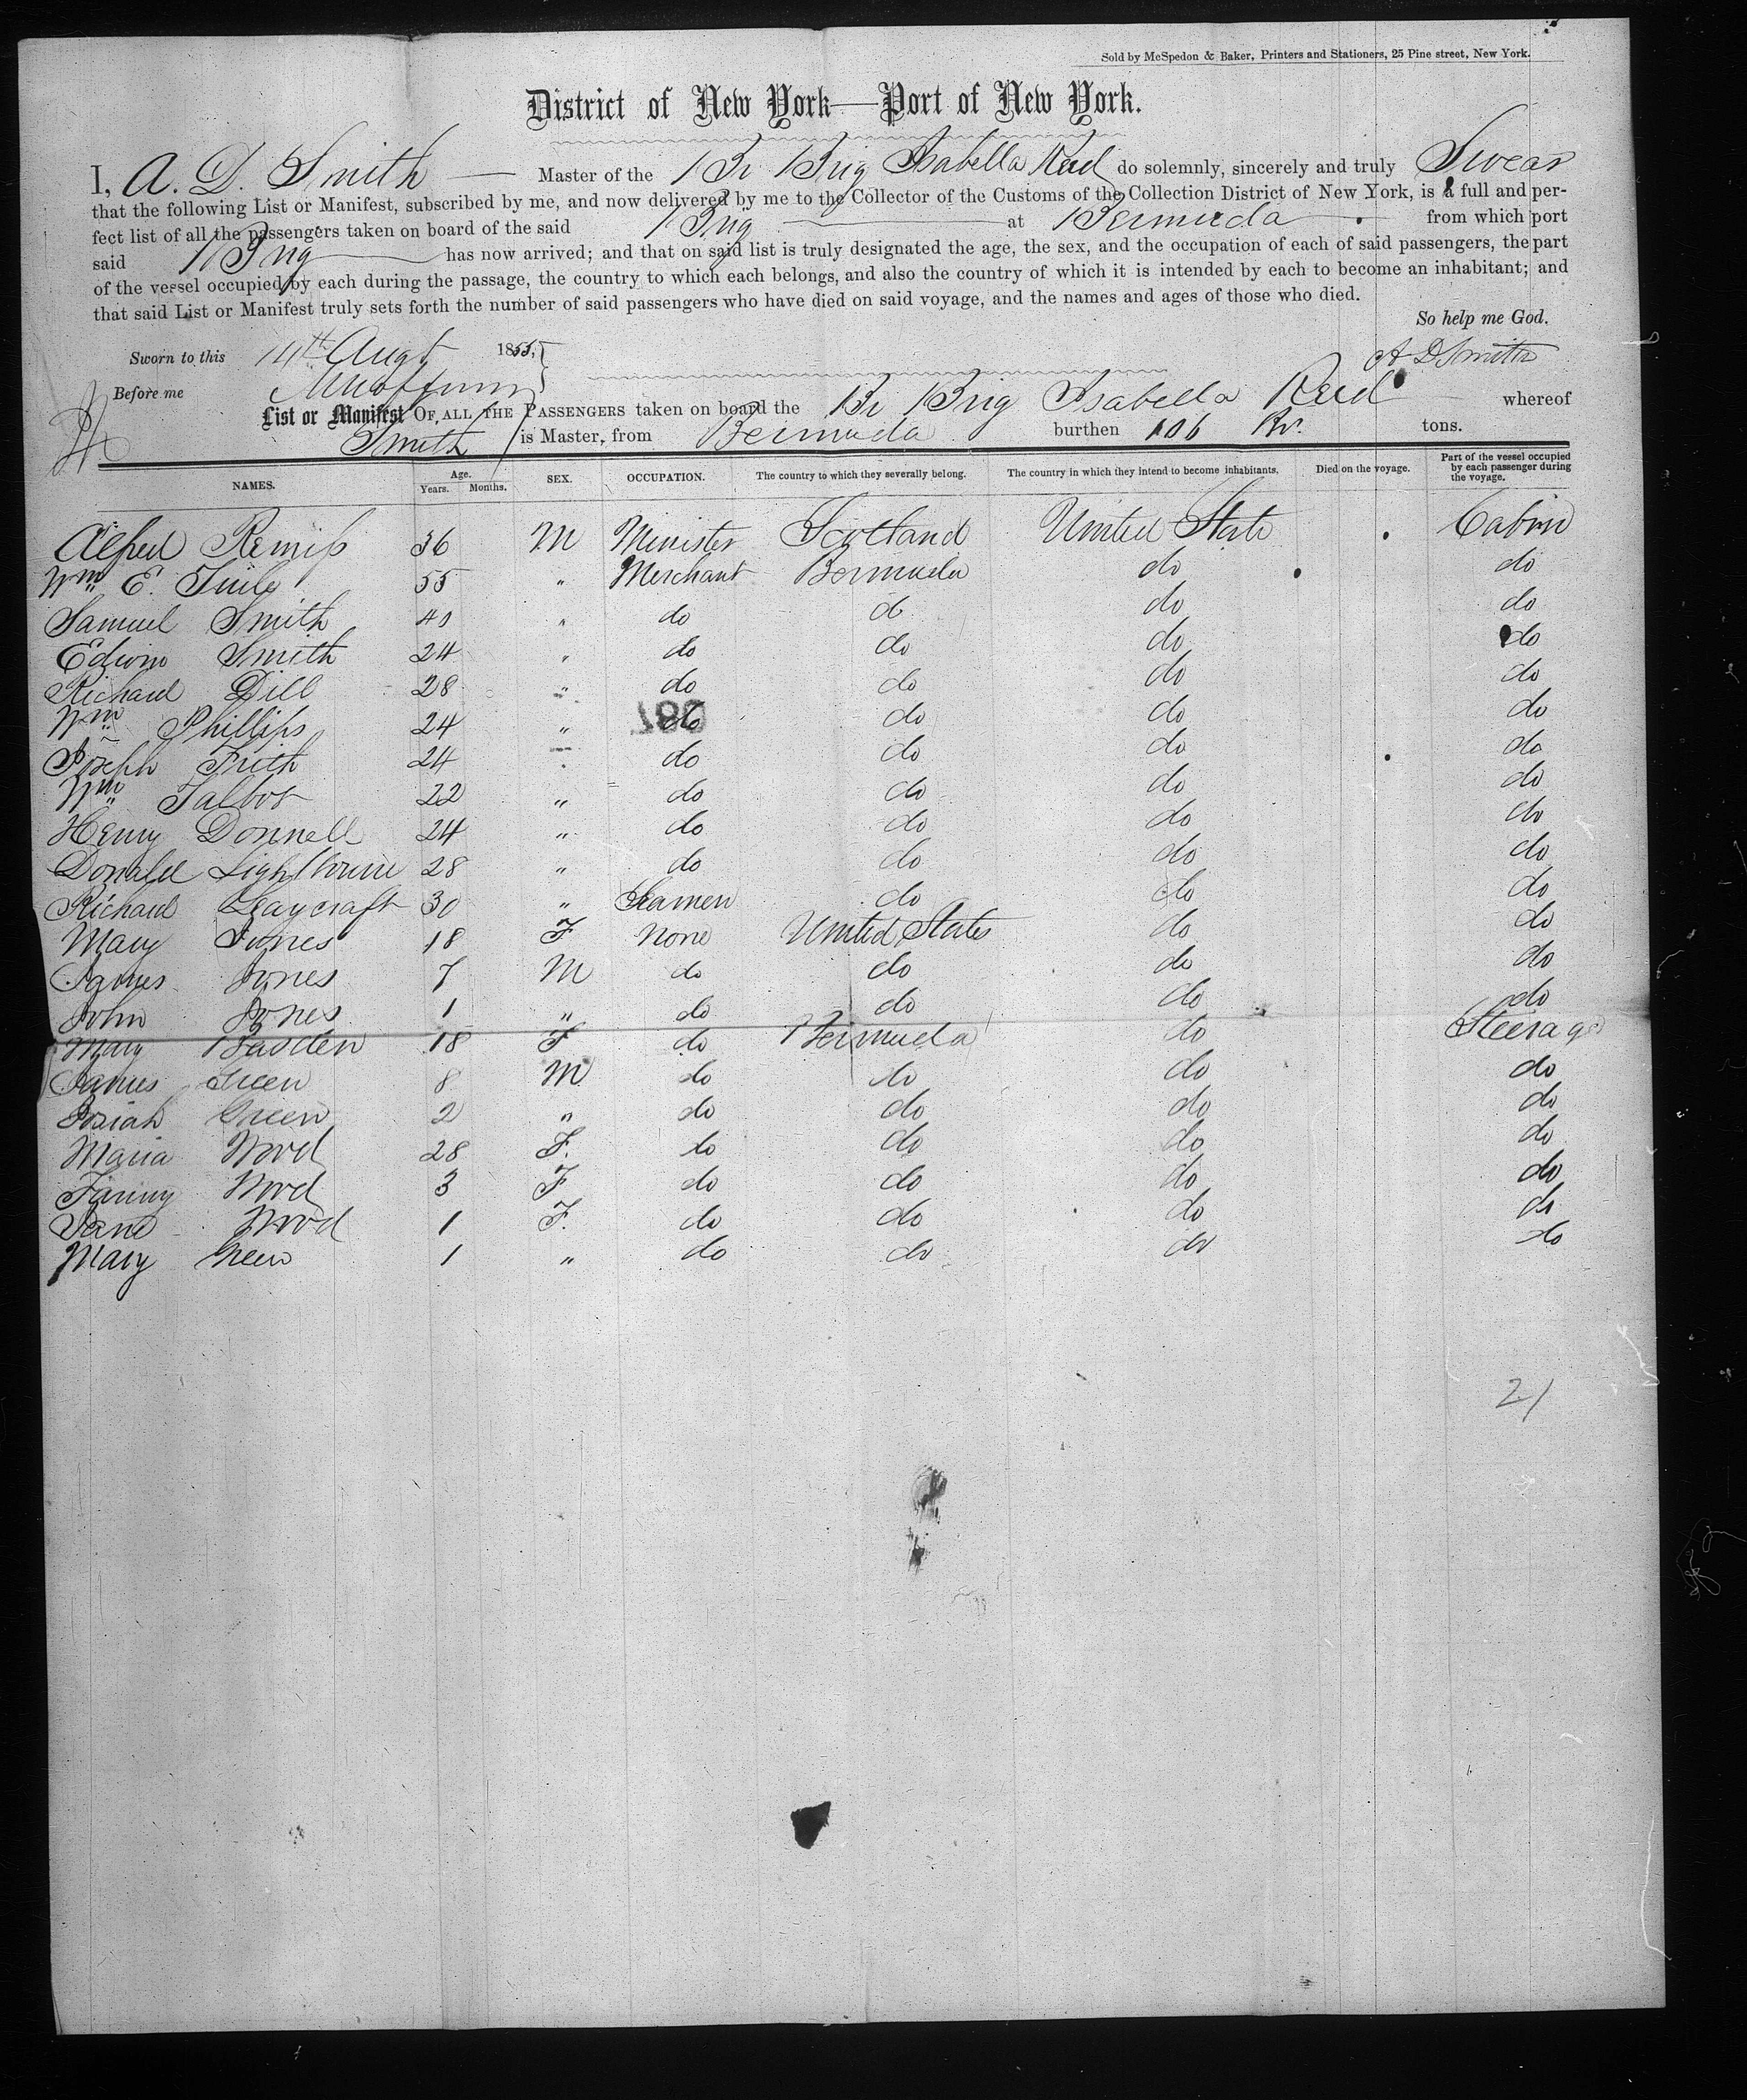 Sold by McSpedon & Baker, Printers and Stationers, 25 Pine street, New York.
District of New York—Port of New York.
I, A. D. Smith — Master of the Br Brig Isabella Reid do solemnly, sincerely and truly Swear
that the following List or Manifest, subscribed by me, and now delivered by me to the Collector of the Customs of the Collection District of New York, is a full and per-
fect list of all the passengers taken on board of the said Brig at Bermuda from which port
said Brig has now arrived; and that on said list is truly designated the age, the sex, and the occupation of each of said passengers, the part
of the vessel occupied by each during the passage, the country to which each belongs, and also the country of which it is intended by each to become an inhabitant; and
that said List or Manifest truly sets forth the number of said passengers who have died on said voyage, and the names and ages of those who died.
So help me God.
Sworn to this 14th Augt 1855,
A D Smith
Before me
List or Manifest OF ALL THE PASSENGERS taken on board the Br Brig Isabella Reid whereof
Smith is Master, from Bermuda burthen 106 tons.
NAMES. Age. Years. Months. SEX. OCCUPATION. The country to which they severally belong. The country in which they intend to become inhabitants. Died on the voyage. Part of the vessel occupied by each passenger during the voyage.
Alfred 36 M Minister Scotland United State Cabin
Wm E. 55 " Merchant Bermuda do do
Samuel Smith 40 " do do do do
Edwin Smith 24 " do do do do
Richard Dill 28 " do do do do
Wm Phillips 24 " do do do do
Joseph Frith 24 " do do do do
Wm Talbot 22 " do do do do
Henry Donnell 24 " do do do do
Donald Lightbourn 28 " do do do do
Richard Leaycraft 30 " Seamen do do do
Mary Jones 18 F None United States do do
James Jones 7 M do do do do
John Jones 1 " do do do do
Mary 18 F do Bermuda do Steerage
James Green 8 M do do do do
Josiah Green 2 " do do do do
Maria Wood 28 F. do do do do
Fanny Wood 3 F do do do do
Jane Wood 1 F. do do do do
Mary Green 1 " do do do do
21